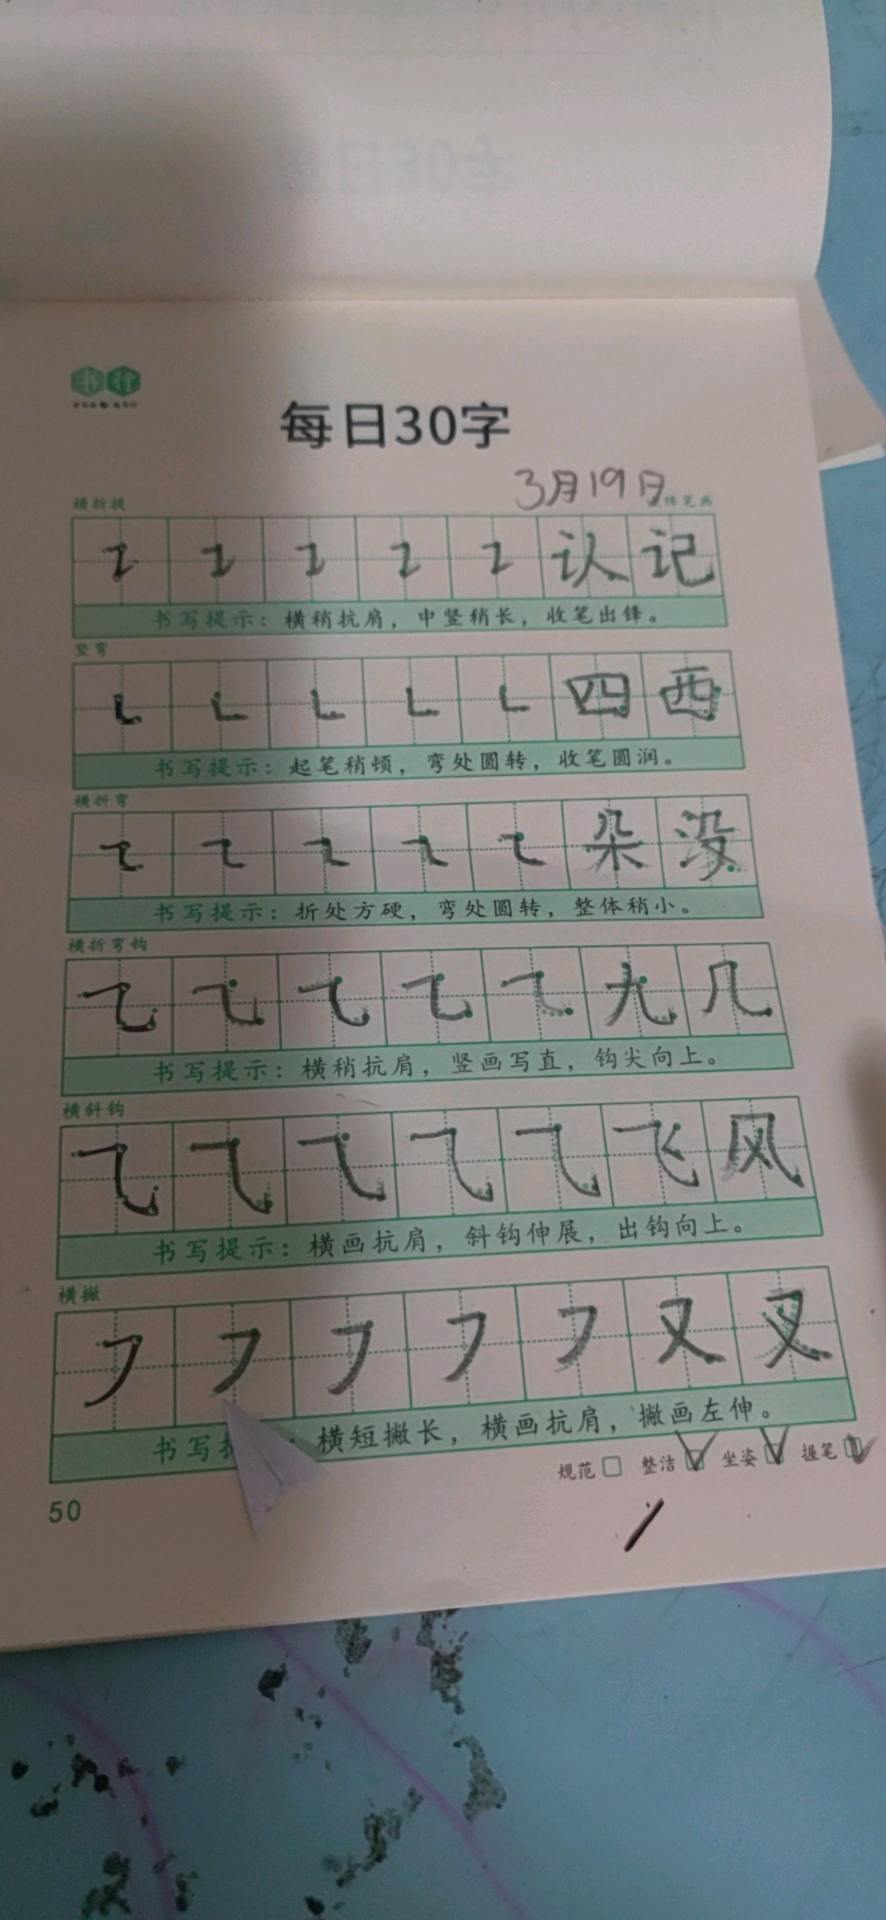 书行
每日30字
3月19日
横折提
认 记
书写提示：横稍抗肩，中竖稍长，收笔出锋。
竖弯
四 西
书写提示：起笔稍顿，弯处圆转，收笔圆润。
横折弯
朵 没
书写提示：折处方硬，弯处圆转，整体稍小。
横折弯钩
九 几
书写提示：横稍抗肩，竖画写直，钩尖向上。
横斜钩
飞 风
书写提示：横画抗肩，斜钩伸展，出钩向上。
横撇
又 叉
书写提：横短撇长，横画抗肩，撇画左伸。
规范 整洁 坐姿 握笔
50